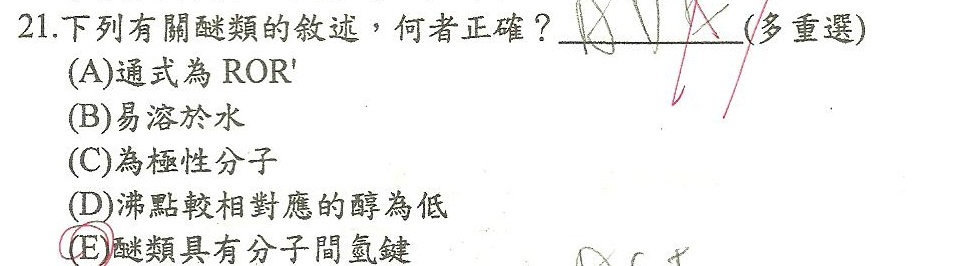 21.下列有關醚類的敘述，何者正確？________(多重選)
(A)通式為 ROR'
(B)易溶於水
(C)為極性分子
(D)沸點較相對應的醇為低
(E)醚類具有分子間氫鍵